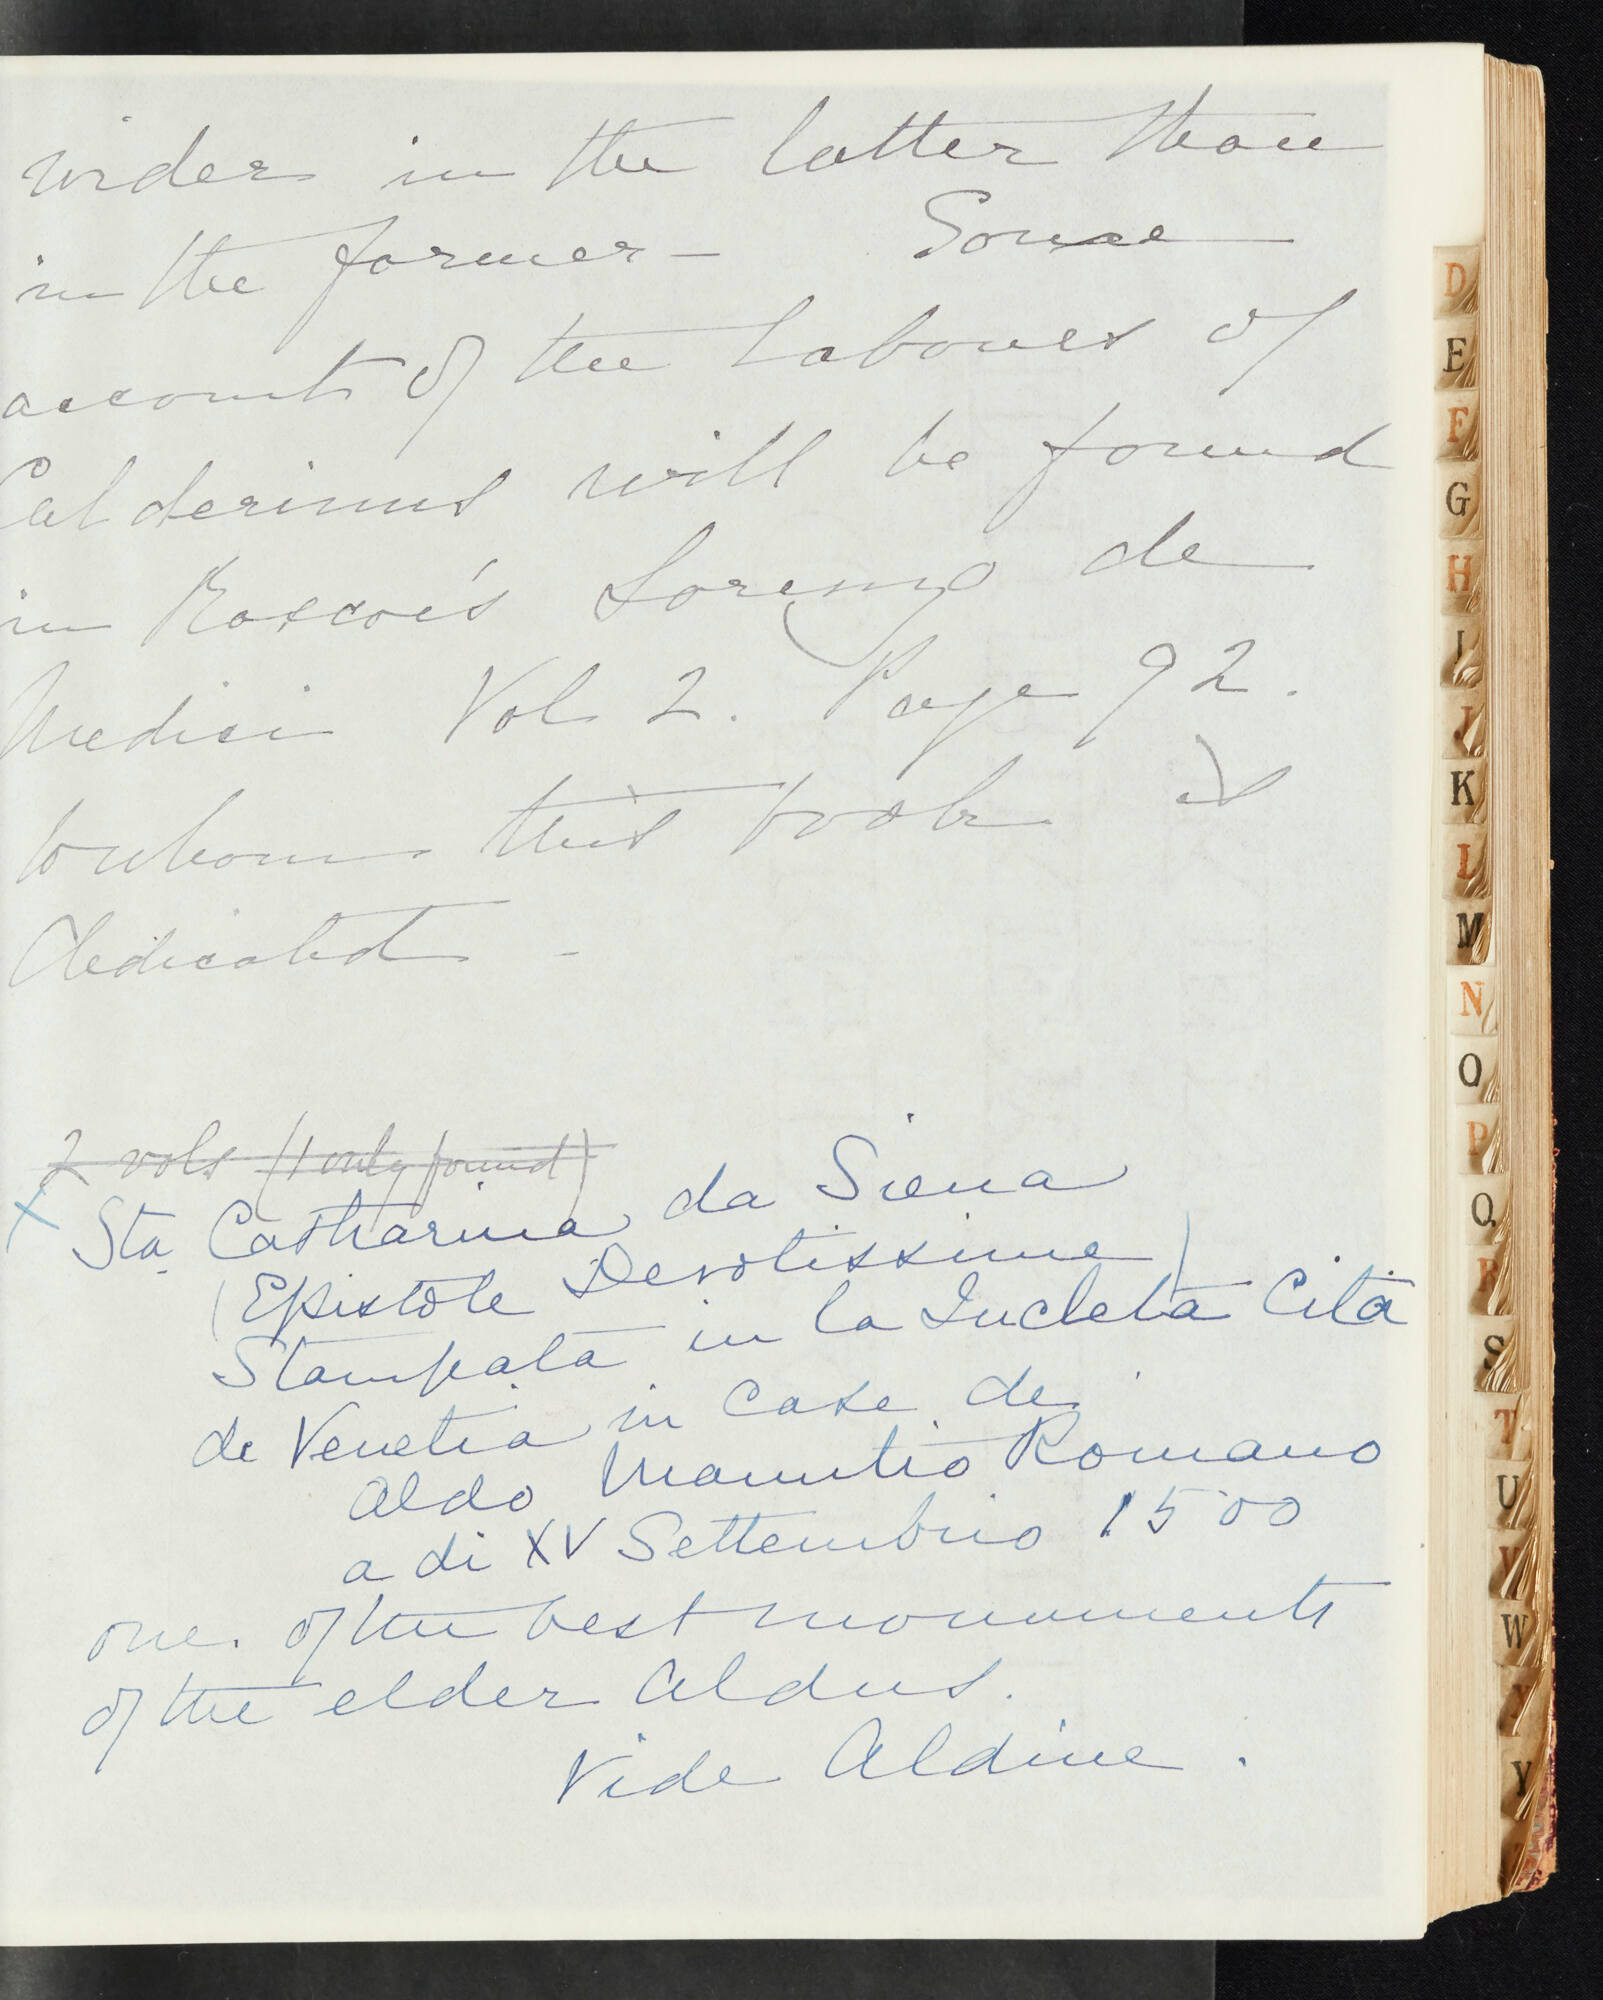 wider in the latter than
in the former — Some
account of the labours of
Calderinus will be found
in Roscoe's Lorenzo de
Medici Vol 2. Page 92.
(to whom this book is)
dedicated —
2 vols (1 only found)
X Sta. Catharina da Siena
(Epistole Devotissime)
Stampata in la Incleta Cità
de Venetia in Case de
Aldo Manutio Romano
a di XV Settembrio 1500
one of the best monuments
of the elder Aldus.
Vide Aldine.
D
E
F
G
H
I
J
K
L
M
N
O
P
Q
R
S
T
U
V
W
X
Y